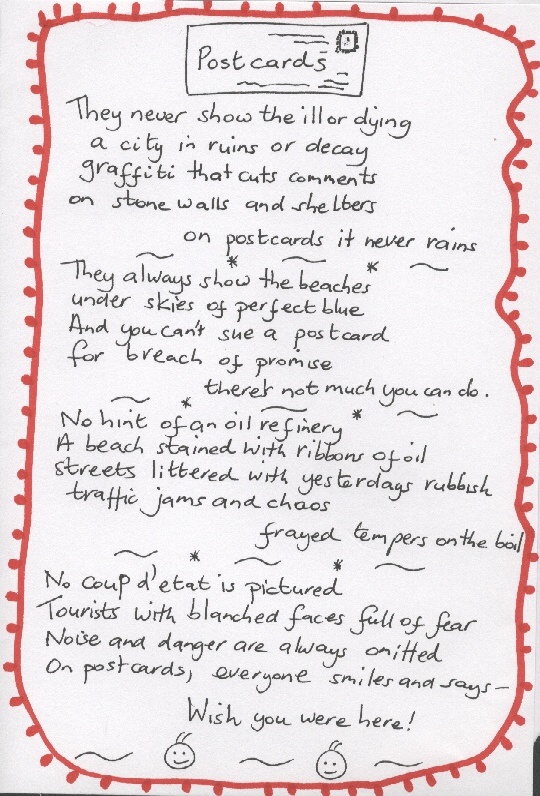 Postcards
They never show the ill or dying
a city in ruins or decay
graffiti that cuts comments
on stone walls and shelters
on postcards it never rains
They always show the beaches
under skies of perfect blue
And you can't sue a postcard
for breach of promise
there's not much you can do.
No hint of an oil refinery
A beach stained with ribbons of oil
streets littered with yesterdays rubbish
traffic jams and chaos
frayed tempers on the boil
No coup d'etat is pictured
Tourists with blanched faces full of fear
Noise and danger are always omitted
On postcards, everyone smiles and says—
Wish you were here!